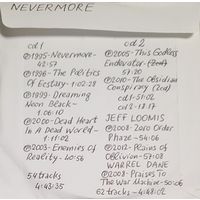 NEVERMORE
cd 1
℗1995-Nevermore-
42:57
℗1996-The Politics
Of Ecstasy-1:02:28
℗1999-Dreaming
Neon Black-
1:06:10
℗2000-Dead Heart
In A Dead World-
1:11:02
℗2003-Enemies Of
Reality-40:56
54 tracks
4:43:35
cd 2
℗2005-This Godless
Endeavor-
57:20
℗2010-The Obsidian
Conspiracy (2cd)
cd1-51:02
cd2-18:17
JEFF LOOMIS
℗2008-Zero Order
Phase-54:06
℗2012-Plains Of
Oblivion-57:08
WARREL DANE
℗2008-Praises To
The War Machine-50:06
62 tracks-4:48:02